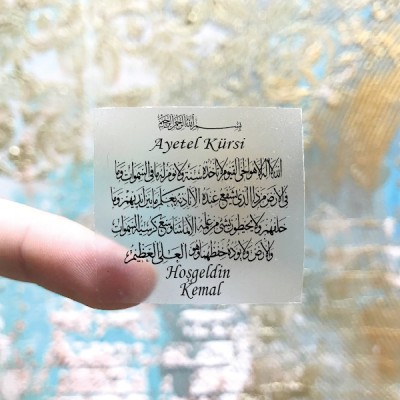 بسم الله الرحمن الرحيم
Ayetel Kürsi
الله لا اله الا هو الحي القيوم لا تاخذه سنة ولا نوم له ما في السموات وما
في الارض من ذا الذي يشفع عنده الا باذنه يعلم ما بين ايديهم وما
خلفهم ولا يحيطون بشيء من علمه الا بما شاء وسع كرسيه السموات
والارض ولا يؤده حفظهما وهو العلي العظيم
Hoşgeldin
Kemal